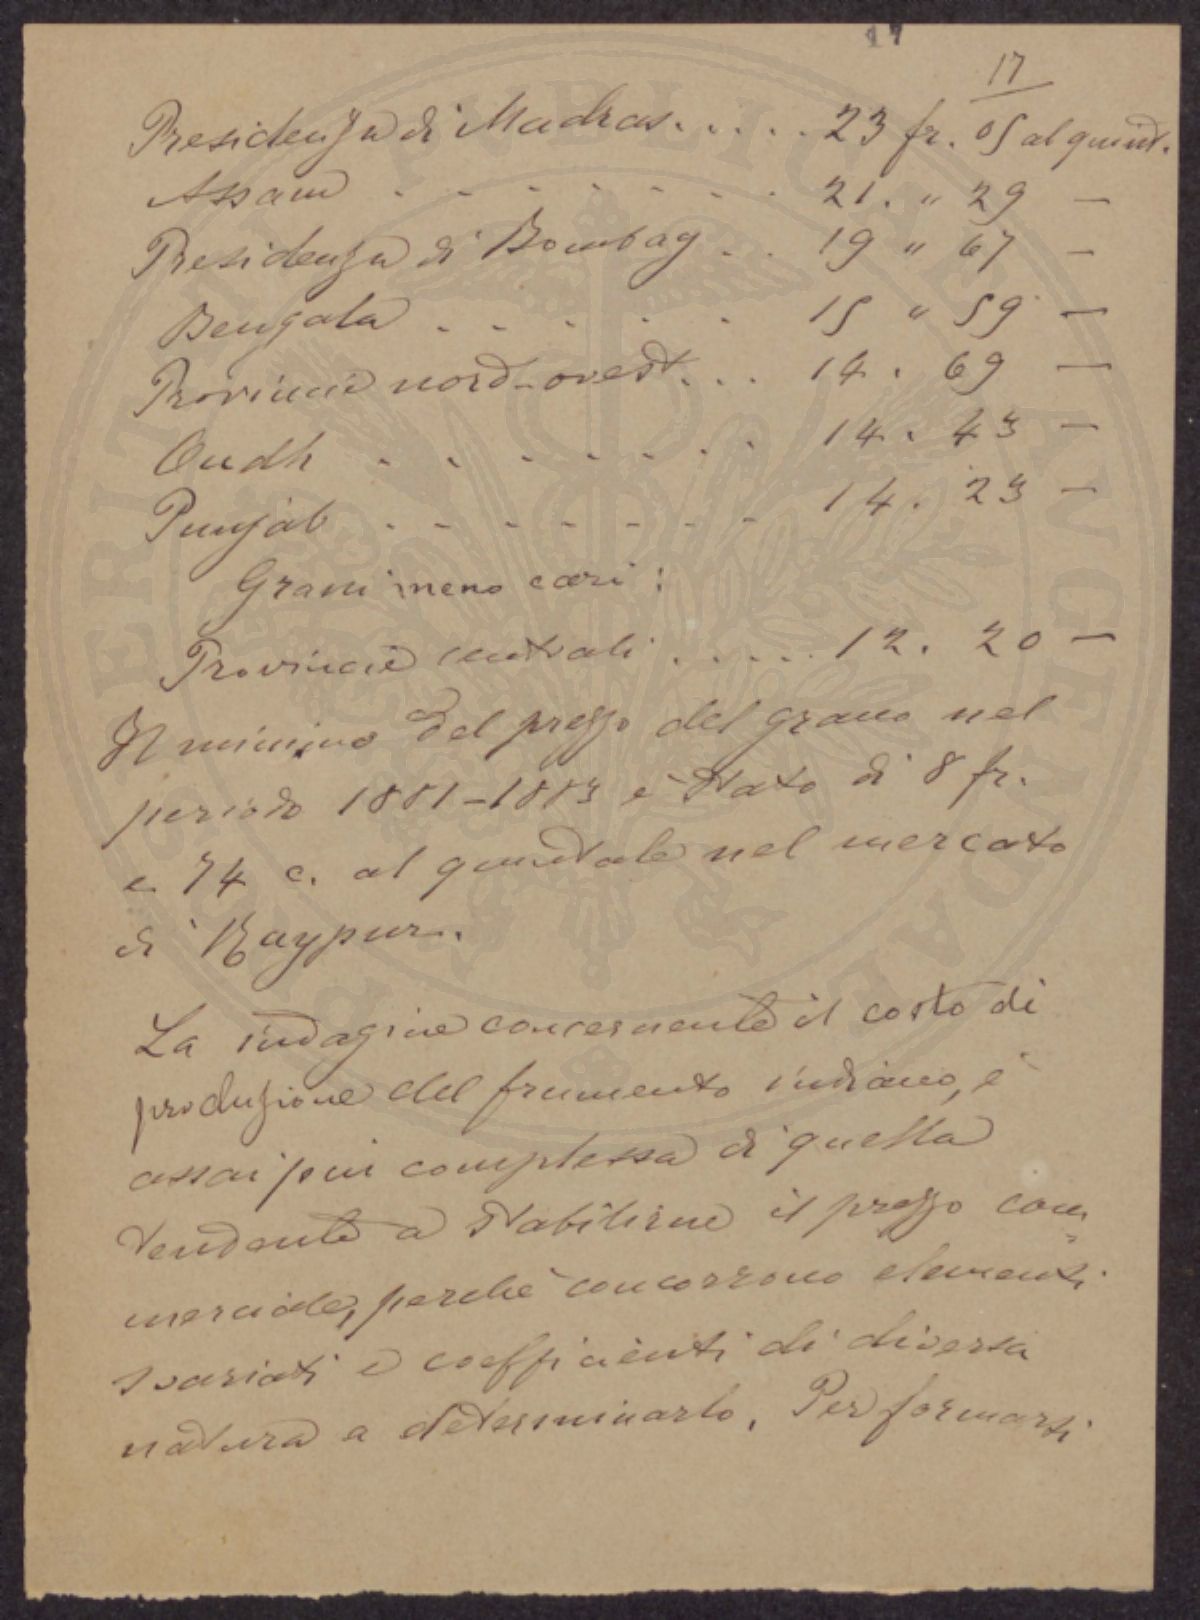 17
17
Presidenza di Madras. . . . . 23 fr. 05 al quint.
Assam . . . . . . . . 21. " 29 —
Presidenza di Bombay . . 19 " 67 —
Bengala . . . . . . 15 " 59 —
Provincie nord-ovest. . . 14. 69 —
Oudh . . . . . . . 14. 43 —
Punjab . . . . . . . 14. 23 —
Grani meno cari:
Provincie centrali . . . . . 12. 20 —
Il minimo del prezzo del grano nel
periodo 1881-1883 è stato di 8 fr.
e 74 c. al quintale nel mercato
di Raypur.
La indagine concernente il costo di
produzione del frumento indiano, è
assai piu complessa di quella
tendente a stabilirne il prezzo com=
merciale, perchè concorrono elementi
svariati e coefficienti di diversa
natura a determinarlo. Per formarsi